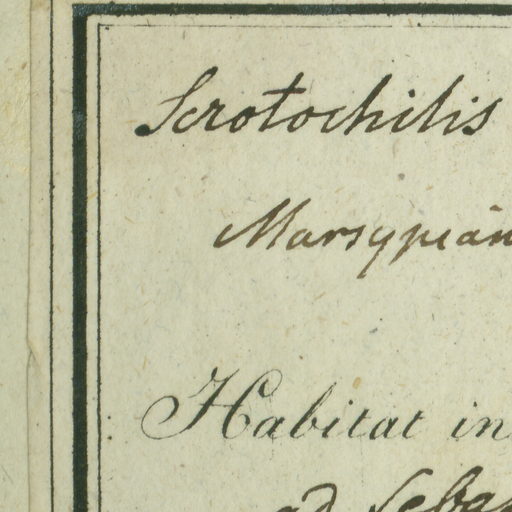 Scrotochilis
Marsypian
Habitat in
ad Seba